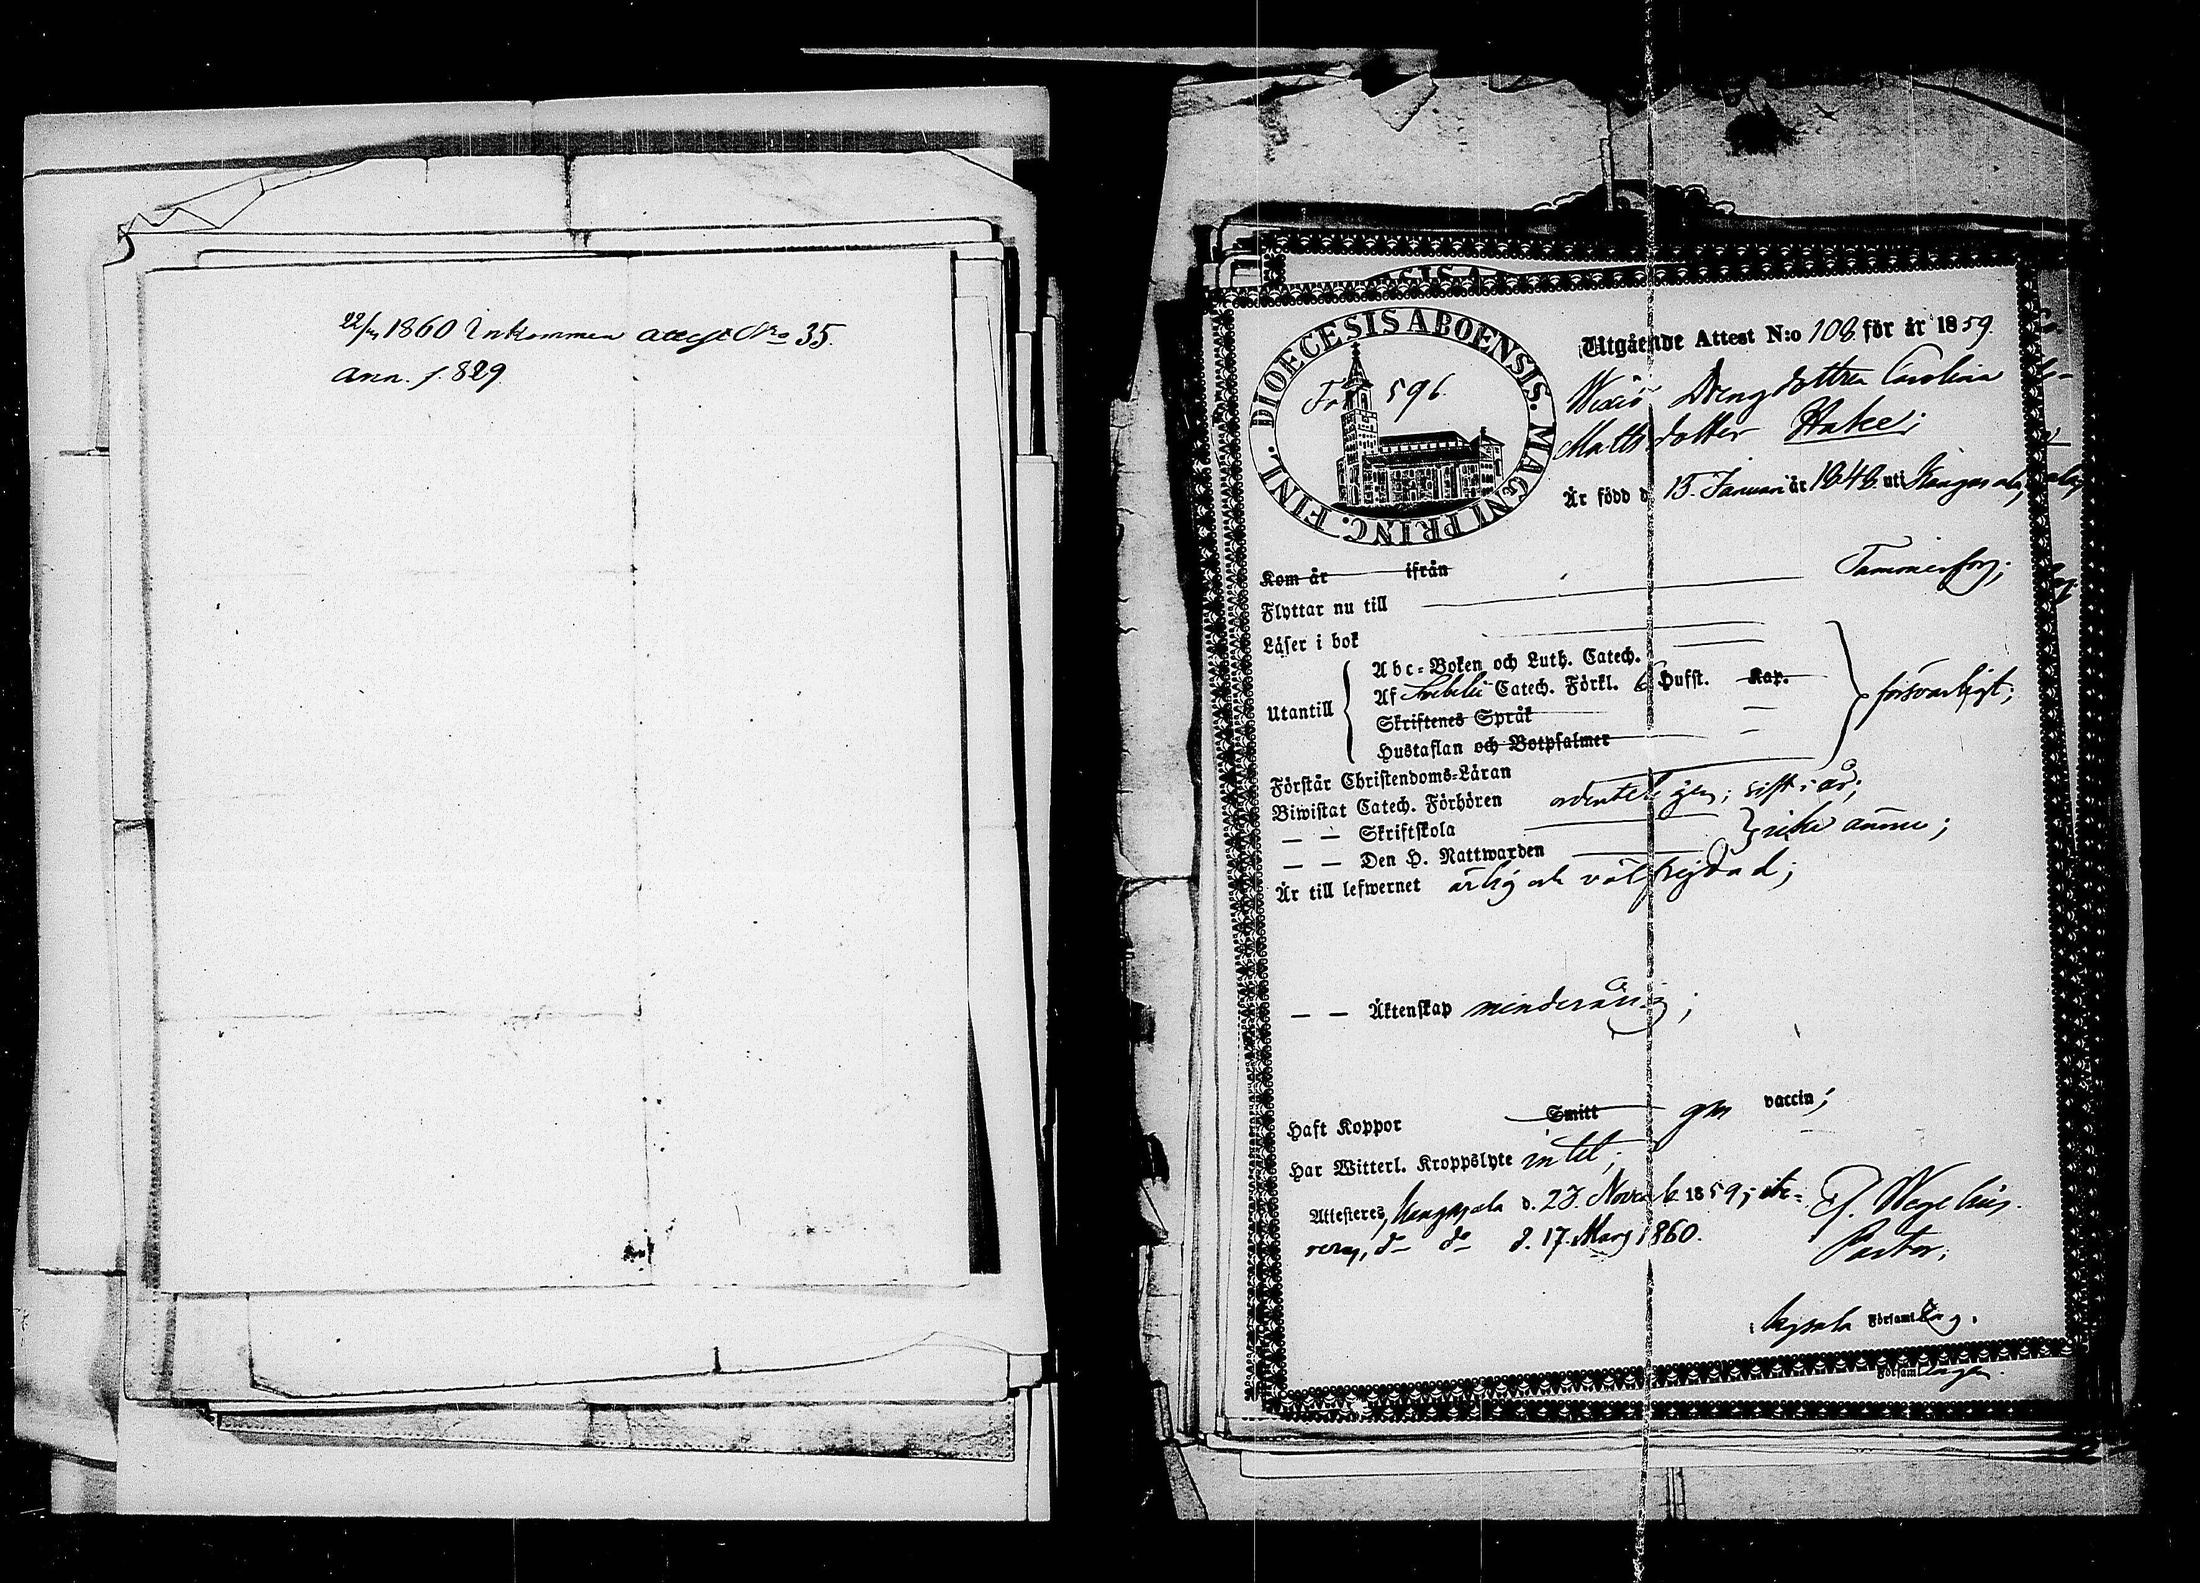 22/3 1860 Inkommen attest No 35.
ann. f. 829
DIOECESIS ABOENSIS. MAGNI PRINC. FINL.
Fol 596.
Utgående Attest N:o 108 för år 1859.
Drengdottren Carolina
Mattsdotter Hakei
Är född d. 15. Januari år 1848 uti Kangasala,
Kom år ifrån
Flyttar nu till Tammerfors;
Läser i bok
Utantill
Abc-Boken och Luth. Catech.
Af Svebelii Catech. Förkl. 6 Hufst. Kap.
Skriftenes Språk
Hustaflan och Botpsalmer
försvarligt;
Förstår Christendoms-Läran
Biwistat Catech. Förhören ordenteligen; sist i år;
— — Skriftskola
— — Den H. Nattwarden
icke ännu;
Är till lefwernet ärlig och välfrejdad;
— — Äktenskap minderårig;
Haft Koppor Smitt gm vaccin;
Har Witterl. Kroppslyte intet;
Attesteres, Kangasala d. 23. Novemb 1859; ite-
reras, do do d. 17. Mars 1860.
Wegelius.
Pastor.
Församl
Församlingen.